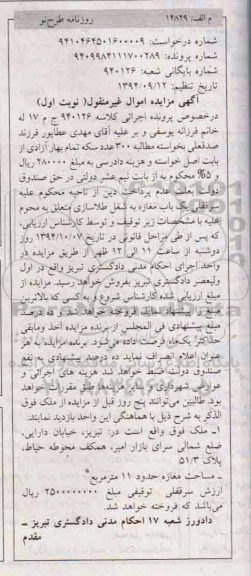 م الف: ۱۴۸۲۹ روزنامه طرح‌نو
شماره درخواست: ۹۴۱۰۴۶۴۵۰۱۶۰۰۰۰۹
شماره پرونده: ۹۴۰۹۹۸۴۱۱۱۷۰۰۲۸۹
شماره بایگانی شعبه: ۹۴۰۱۲۶
تاریخ تنظیم: ۱۳۹۴/۰۹/۱۲
آگهی مزایده اموال غیرمنقول( نوبت اول)
درخصوص پرونده اجرائی کلاسه ۹۴۰۱۲۶ ج م ۱۷ له
خانم فرزانه یوسفی و بر علیه آقای مهدی عطاپور فرزند
صدقعلی بخواسته مطالبه ۳۰۰ عدد سکه تمام بهار آزادی از
بابت اصل خواسته و هزینه دادرسی به مبلغ ۲۸۰۰۰۰ ریال
و ۵% محکوم به از بابت نیم عشر دولتی در حق صندوق
دولت بعلت عدم پرداخت دین از ناحیه محکوم علیه
سرقفلی یک باب مغازه به شغل طلاسازی متعلق به محکوم
علیه با مشخصات زیر توقیف و توسط کارشناس ارزیابی،
که پس از طی مراحل قانونی در تاریخ ۱۳۹۴/۱۰/۰۷ روز
دوشنبه از ساعت ۱۱ الی ۱۲ ظهر از طریق مزایده در
واحد اجرای احکام مدنی دادگستری تبریز واقع در اول
ولیعصر دادگستری تبریز بفروش خواهد رسید. مزایده از
مبلغ ارزیابی شده کارشناس شروع و به کسی که بالاترین
مبلغ را پیشنهاد نماید فروخته خواهد شد و ده درصد
مبلغ پیشنهادی فی المجلس از برنده مزایده اخذ و مابقی
حداکثر یک‌ماه فرصت داده می‌شود. برنده مزایده به هر
عنوان اعلام انصراف نماید ده درصد پیشنهادی به نفع
صندوق دولت ضبط خواهد شد هزینه های اجرائی و
عوارض شهرداری و سایر هزینه‌ها طبق مقررات خواهد
بود. طالبین می‌توانند پنج روز قبل از مزایده از ملک فوق
الذکر به شرح ذیل با هماهنگی این واحد بازدید نمایند.
۱- ملک فوق واقع است در: تبریز، خیابان دارایی،
ضلع شمالی سرای بازار امیر، همکف محوطه حیاط،
پلاک ۵۱/۳
- مساحت مغازه حدود ۱۱ مترمربع
ارزش سرقفلی توقیفی مبلغ ۲۵۰۰۰۰۰۰۰۰ ریال
می‌باشد که فروخته خواهد شد.
دادورز شعبه ۱۷ احکام مدنی دادگستری تبریز –
مقدم